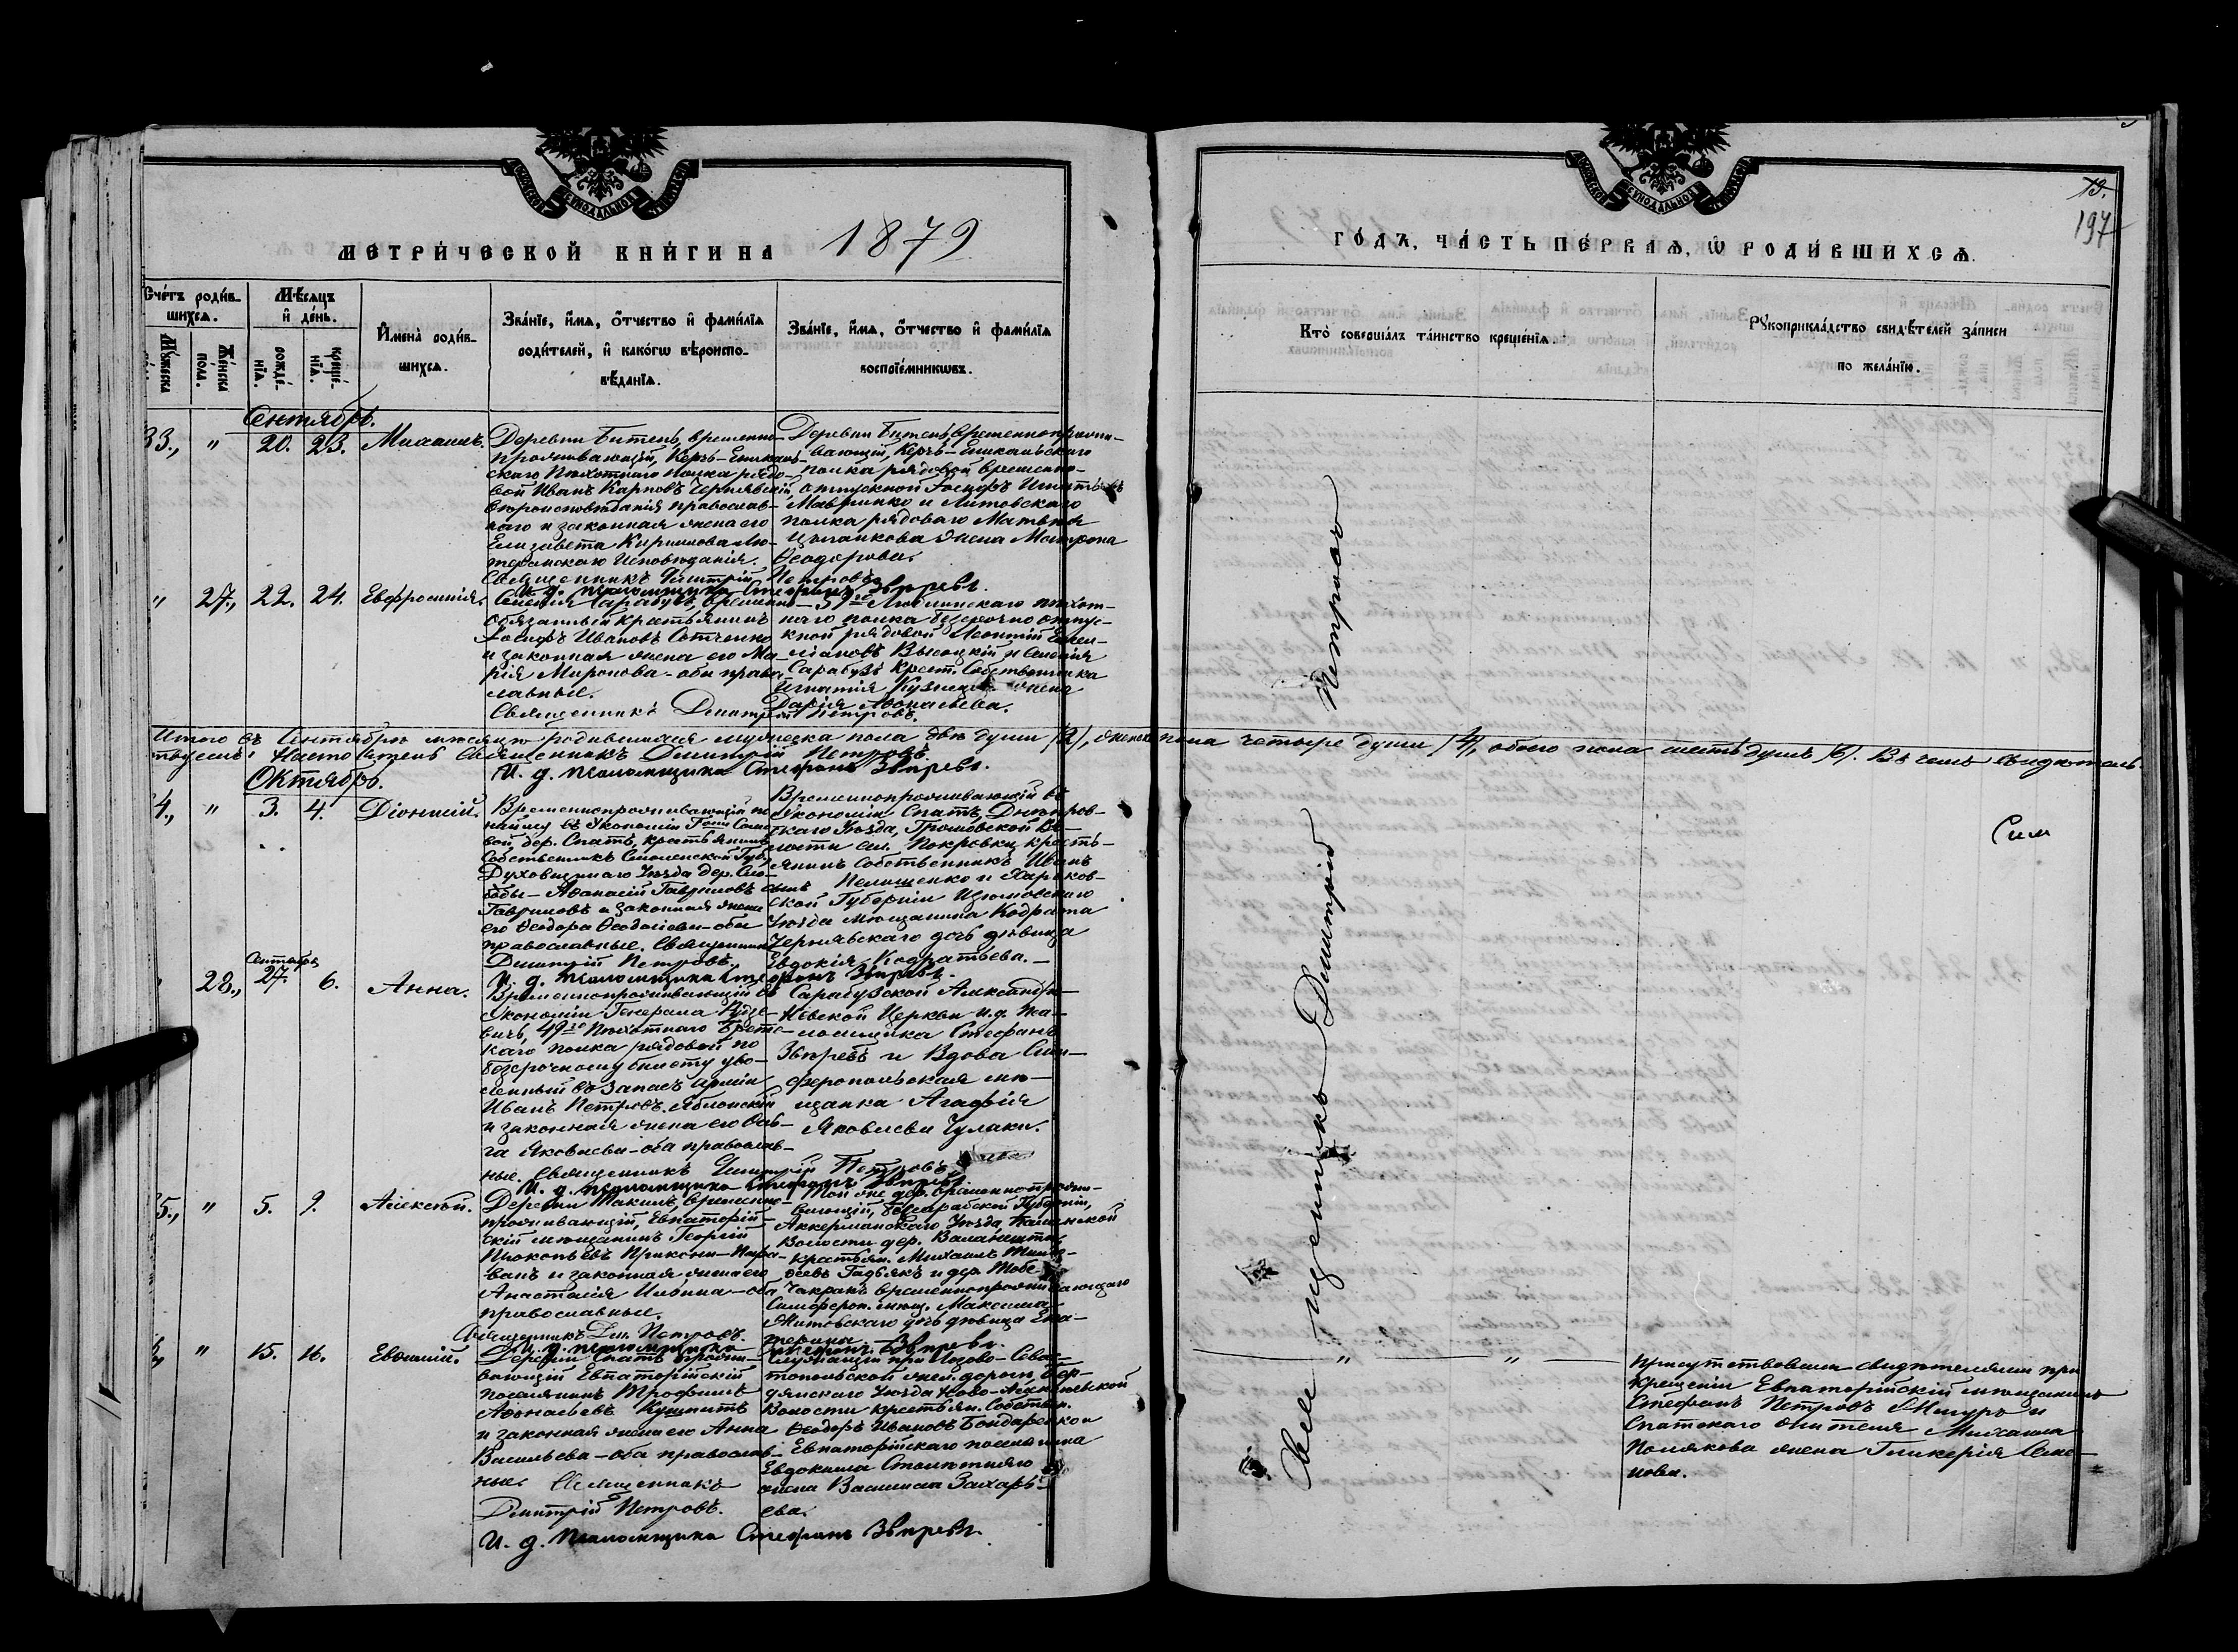 МЕТРИ́ЧЕСКОЙ КНИ́ГИ НА 1879
ГО́ДЪ, ЧА́СТЬ ПЕ́РВАѦ, Ѡ РОДИ́ВШИХСѦ.
19.
197
Сче́тъ роди́в-
шихсѧ.
Мѣ́сѧцъ
и̂ де́нь.
И̂мена̀ роди́в-
шихсѧ.
Зва́нїе, и̂́мѧ, о̂́тчество и̂ фами́лїѧ
роди́телей, и̂ како́гѡ вѣроиспо-
вѣ́данїѧ.
Зва́нїе, и̂́мѧ, о̂́тчество и̂ фами́лїѧ
воспрїе́мникѡвъ.
Мꙋ́жеска
Же́нска
пола.
рожде́-
нїѧ.
креще́-
нїѧ.
Кто̀ соверша́лъ та́инство креще́нїѧ.
Рꙋкоприкла́дство свидѣ́телей за́писи
по жела́нїю.
Сентябрь.
33., " 20. 23. Михаилъ.
Деревни Битень, временно-
проживающій, Керчь-Еникаль-
скаго Пѣхотнаго полка рядо-
вой Иванъ Карповъ Чернявскій,
вѣроисповѣданія православ-
наго и законная жена его
Елизавета Кириллова Лю-
теранскаго Исповѣданія.
Священникъ Димитрій Петровъ.
И. д. псаломщика Стефанъ Звѣревъ.
Деревни Битень, временнопрожи-
вающій, Керчь-Еникальскаго
полка рядовой временно-
отпускной Іосифъ Игнатьевъ
Мавринко и Литовскаго
полка рядоваго Матвѣя
Цыганкова жена Матрона
Ѳеодорова.
" 27., 22. 24. Евфросинія.
Селенія Сарабузъ, временно-
обязанный крестьянинъ
Іосифъ Ивановъ Сотченко
и законная жена его Ма-
рія Миронова - оба право-
славные.
Священникъ Димитрій Петровъ.
59го Люблинскаго пѣхот-
наго полка безсрочно отпус-
кной рядовой Леонтій Емел-
ьяновъ Высоцкій и селенія
Сарабузъ крест. Собственника
Игнатія Кузнецова жена
Дарія Аѳонасьева.
Итого въ Сентябрѣ мѣсяцѣ родившихся мужеска пола двѣ души (2), женска пола четыре души (4), обоего пола шесть душъ (6). Въ чемъ свидѣтель-
ствуемъ: Настоятель Священникъ Димитрій Петровъ.
И. д. псаломщика Стефанъ Звѣревъ.
Октябрь.
4., " 3. 4. Діонисій.
Временнопроживающій по
найму въ Экономіи
вой, дер. Спатъ, крестьянинъ
Собственникъ Смоленской Губ.,
Духовщинаго Уѣзда дер. Сло-
боды - Аѳанасій Гавриловъ сынъ
Гавриловъ и законная жена
его Ѳеодора Ѳеодосіева - оба
православные. Священникъ
Димитрій Петровъ.
И. д. псаломщика Стефанъ Звѣревъ.
Временнопроживающій въ
Экономіи Спатъ, Днѣпров-
скаго Уѣзда, Громовской Во-
лости сел. Покровки, кресть-
янинъ Собственникъ Иванъ
Пелишенко и Харьков-
ской Губерніи Изюмовскаго
Уѣзда мѣщанина Кодрата
Чернявскаго дочь дѣвица
Евдокія Кодратьева.
Сентябрь
28., 27. 6. Анна.
Временнопроживающій въ
Экономіи Генерала
вичъ, 49го Пѣхотнаго Брест-
скаго полка рядовой по
безсрочному билету уво-
ленный въ запасъ арміи
Иванъ Петровъ Яблонскій
и законная жена его Оль-
га Яковлева - оба православ-
ные. Священникъ Димитрій Петровъ.
И. д. псаломщика Стефанъ Звѣревъ.
Сарабузской Александро-
Невской Церкви и. д. пса-
ломщика Стефанъ
Звѣревъ и Вдова Сим-
феропольская мѣ-
щанка Агафія
Яковлева Чулаки.
5., " 5. 9. Алексѣй.
Деревни Такилъ, временно-
проживающій, Евпаторій-
скій мѣщанинъ Георгій
Прокопьевъ
и законная жена его
Анастасія Ильина - оба
православные.
Священникъ Дим. Петровъ.
И. д. псаломщика Стефанъ Звѣревъ.
Той же дер. временно прожи-
вающій, Бессарабской Губерніи,
Аккерманскаго Уѣзда,
Волости дер.
крестьян. Михаилъ
и дер. Тобе-
Чакракъ временнопроживающаго
Симфероп. мѣщ. Максима
дочь дѣвица Ека-
терина.
" 15. 16. Евѳимій.
Деревни Спатъ прожи-
вающій Евпаторійскій
поселянинъ Трофимъ
Аѳонасьевъ
и законная жена его Анна
Васильева - оба православ-
ные. Священникъ
Димитрій Петровъ.
И. д. псаломщика Стефанъ Звѣревъ.
Служащій при Лозово-Севас-
топольской жел. дорогѣ, Бер-
дянскаго Уѣзда Ново-Алексѣевской
Волости крестьян. Собствен.
Ѳеодоръ Ивановъ Бондаренко и
Евпаторійскаго поселянина
Евдокима
жена Василиса Захарь-
ева.
Священникъ Димитрій Петровъ
Сим
" "
Присутствовали свидѣтелями при
Крещеніи Евпаторійскій мѣщанинъ
Стефанъ Петровъ и
Спатскаго жителя Михаила
Полякова жена Гликерія Семе-
нова.